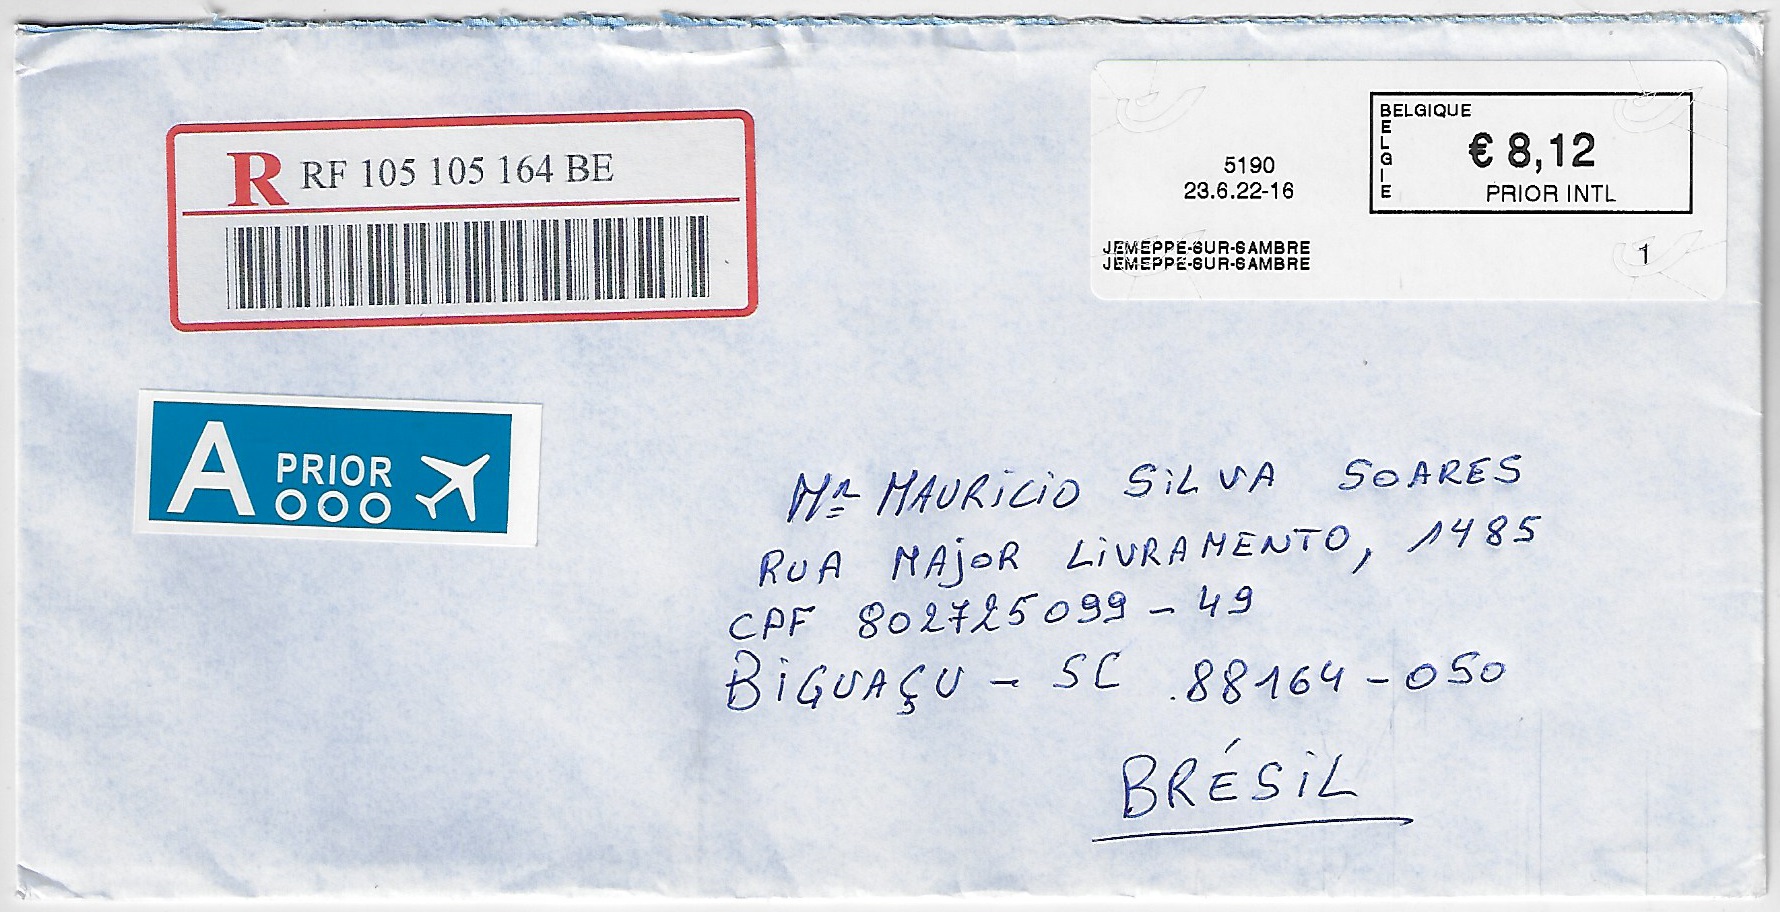 R RF 105 105 164 BE
BELGIQUE
BELGIE
€ 8,12
PRIOR INTL
5190
23.6.22-16
JEMEPPE-SUR-SAMBRE
JEMEPPE-SUR-SAMBRE
1
A PRIOR
Mr MAURICIO SILVA SOARES
RUA MAJOR LIVRAMENTO, 1485
CPF 802725099-49
BIGUAÇU - SC 88164-050
BRÉSIL